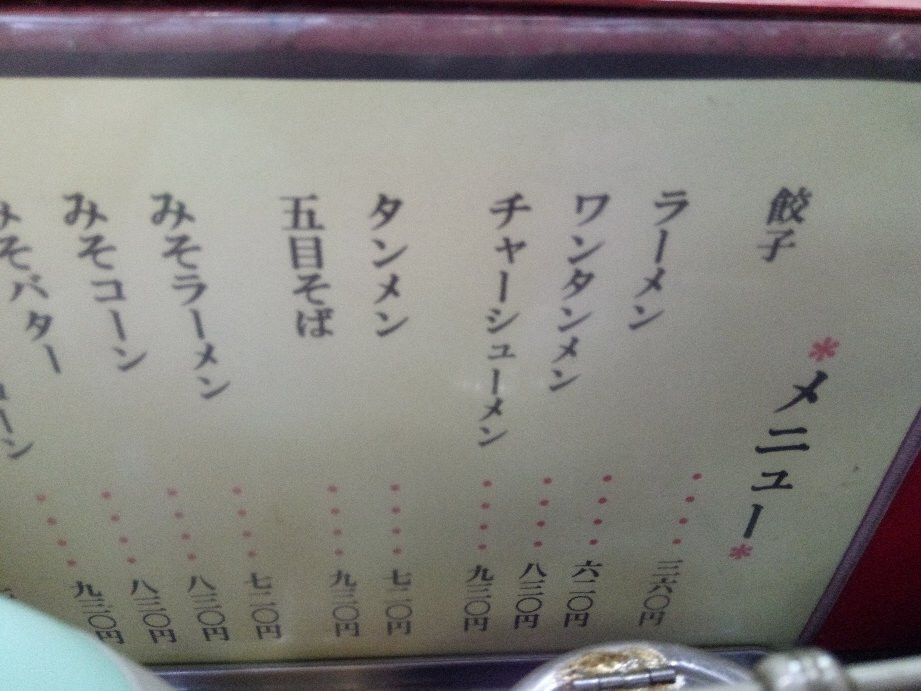 *メニュー*
餃子 ・・・・ 三六〇円
ラーメン ・・・・ 六二〇円
ワンタンメン ・・・・ 八三〇円
チャーシューメン ・・・・ 九三〇円
タンメン ・・・・ 七二〇円
五目そば ・・・・ 九三〇円
みそラーメン ・・・・ 七二〇円
みそコーン ・・・・ 八二〇円
みそバター ・・・・ 八三〇円
ーン ・・・・ 九三〇円